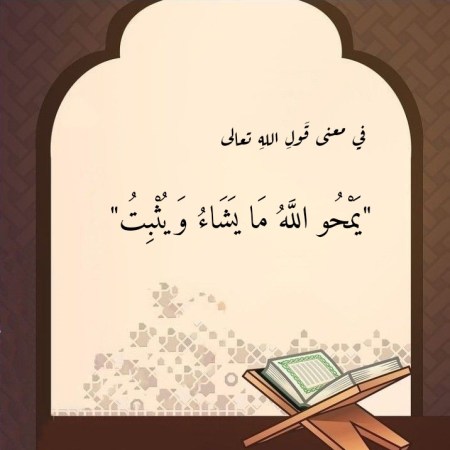 في معنى قَولِ اللهِ تعالى
"يَمْحُو اللَّهُ مَا يَشَاءُ وَيُثْبِتُ"